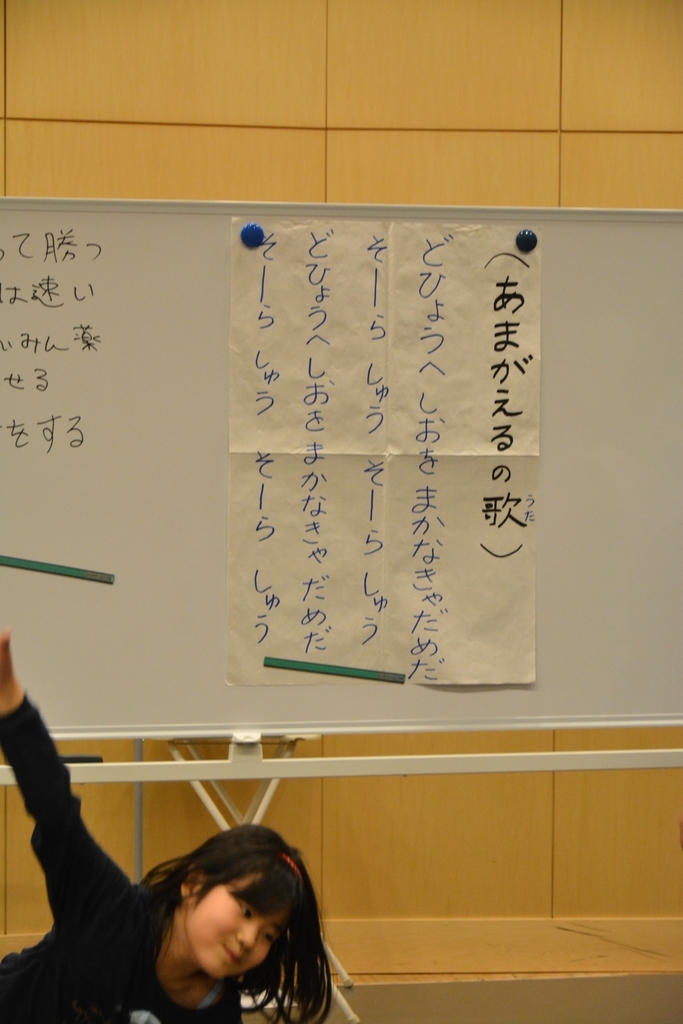 （あまがえるの歌）
うた
どひょうへ しおを まかなきゃ だめだ
そーら しゅう そーら しゅう
どひょうへ しおを まかなきゃ だめだ
そーら しゅう そーら しゅう
って勝つ
は速い
いみん薬
せる
をする